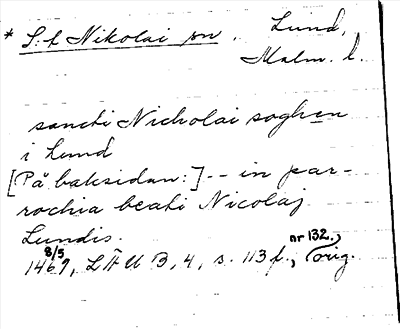 * S:t Nikolai sn. Lund,
Malm. l.
sancti Nicholai soghen
i Lund
[På baksidan:] -- in par-
rochia beati Nicolaj
Lundis.
8/5
1469, LÄUB, 4, s. 113 f., nr 132., orig.